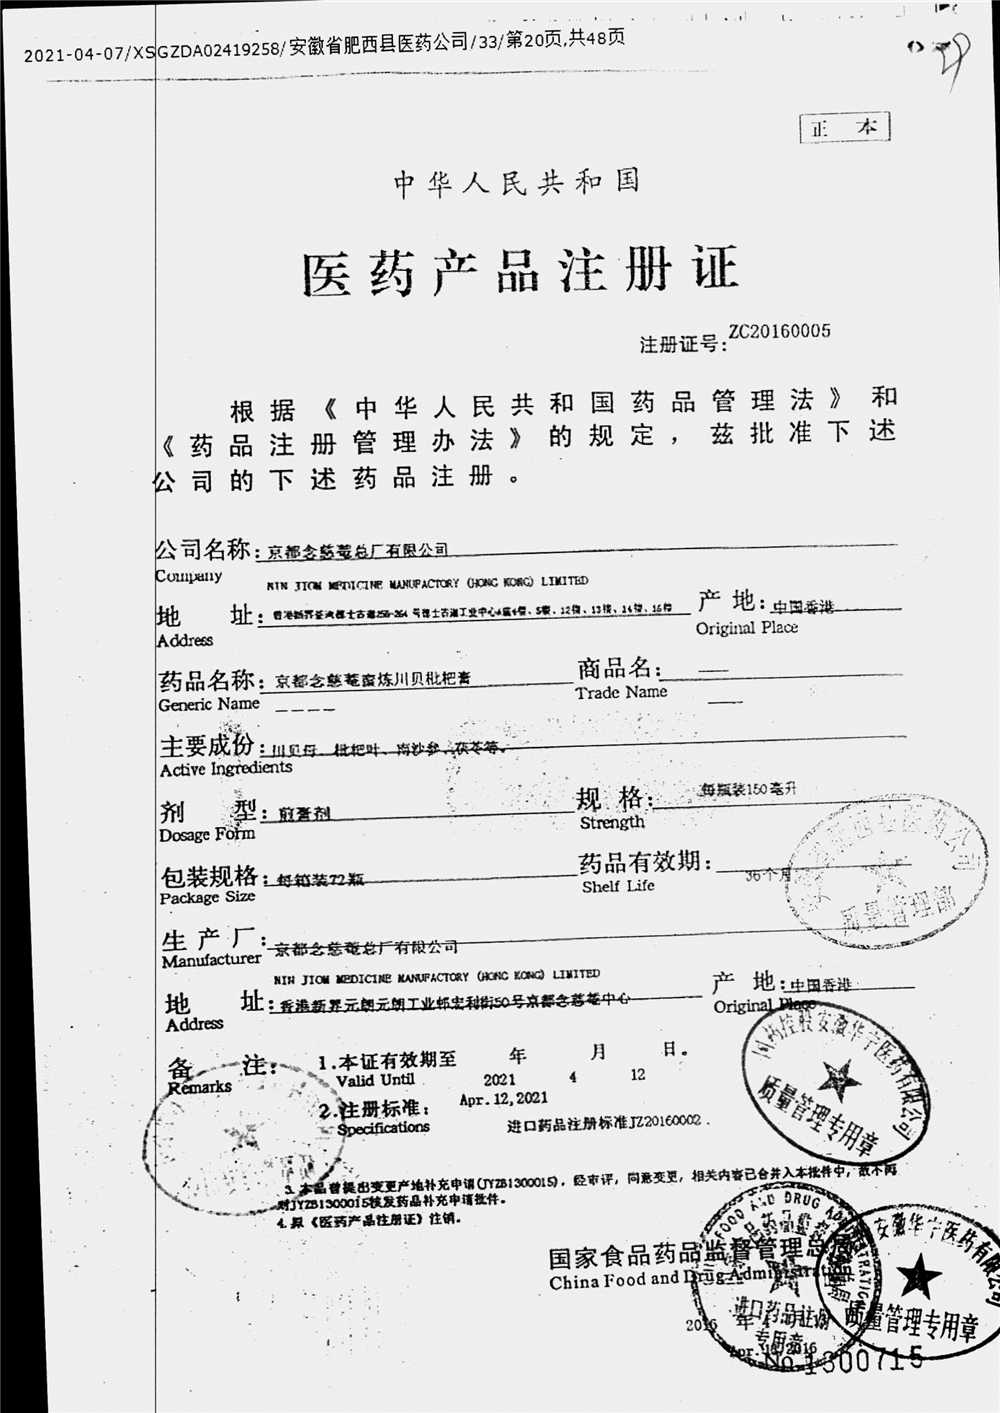 2021-04-07/XSGZDA02419258/安徽省肥西县医药公司/33/第20页,共48页
正 本
中华人民共和国
医药产品注册证
注册证号:ZC20160005
根据《中华人民共和国药品管理法》和
《药品注册管理办法》的规定，兹批准下述
公司的下述药品注册。
公司名称:京都念慈菴总厂有限公司
Company
NIN JIOM MEDICINE MANUFACTORY (HONG KONG) LIMITED
地 址:香港新界荃湾德士古道256-264号德士古道工业中心A座4楼、5楼、12楼、13楼、14楼、16楼 产 地:中国香港
Address Original Place
药品名称:京都念慈菴蜜炼川贝枇杷膏 商品名: ——
Generic Name ———— Trade Name ——
主要成份:川贝母、枇杷叶、南沙参、茯苓等。
Active Ingredients
剂 型:煎膏剂 规 格:每瓶装150毫升
Dosage Form Strength
包装规格:每箱装72瓶 药品有效期:36个月
Package Size Shelf Life
生产厂:京都念慈菴总厂有限公司
Manufacturer
NIN JIOM MEDICINE MANUFACTORY (HONG KONG) LIMITED
地 址:香港新界元朗元朗工业邨宏利街50号京都念慈菴中心 产 地:中国香港
Address Original Place
备 注: 1.本证有效期至 年 月 日。
Remarks Valid Until 2021 4 12
Apr.12,2021
2.注册标准:
Specifications 进口药品注册标准JZ20160002.
3.本品曾提出变更产地补充申请(JYZB1300015)，经审评，同意变更，相关内容已合并入本批件中，故不再
对JYZB1300015核发药品补充申请批件。
4.原《医药产品注册证》注销。
国家食品药品监督管理总局
China Food and Drug Administration
2016 年 4 月 13
Apr. 13, 2016
No.1300715
安徽省肥西县医药公司
质量管理部
国药控股安徽华宁医药有限公司
质量管理专用章
FOOD AND DRUG ADMINISTRATION
进口药品注册
专用章
安徽华宁医药有限公司
质量管理专用章